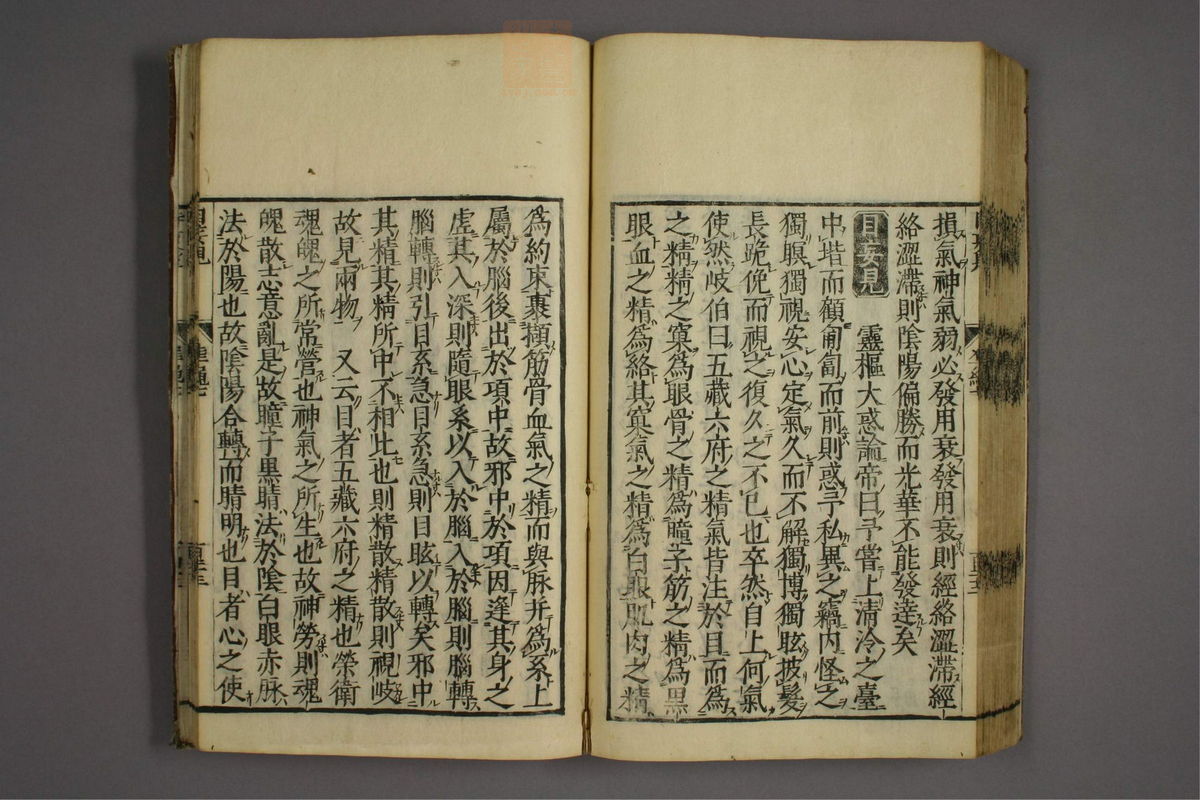 損氣神氣弱必發用衰發用衰則經絡澀滯經
絡澀滯則陰陽偏勝而光華不能發達矣
目妄見
靈樞大惑論帝曰予嘗上清泠之臺
中堦而顧匍匐而前則惑予私異之竊内怪之
獨瞑獨視安心定氣久而不解獨博獨眩披髮
長跪俛而視之復久之不已也卒然自上何氣
使然岐伯曰五藏六府之精氣皆注於目而爲
之精精之窠爲眼骨之精爲瞳子筋之精爲黑
眼血之精爲絡其窠氣之精爲白眼肌肉之精
爲約束裹擷筋骨血氣之精而與脉并爲系上
屬於腦後出於項中故邪中於項因逢其身之
虚其入深則隨眼系以入於腦入於腦則腦轉
腦轉則引目系急目系急則目眩以轉矣邪中
其精其精所中不相比也則精散精散則視岐
故見兩物 又云目者五藏六府之精也榮衛
魂魄之所常營也神氣之所生也故神勞則魂
魄散志意亂是故瞳子黒睛法於陰白眼赤脉
法於陽也故陰陽合轉而睛明也目者心之使